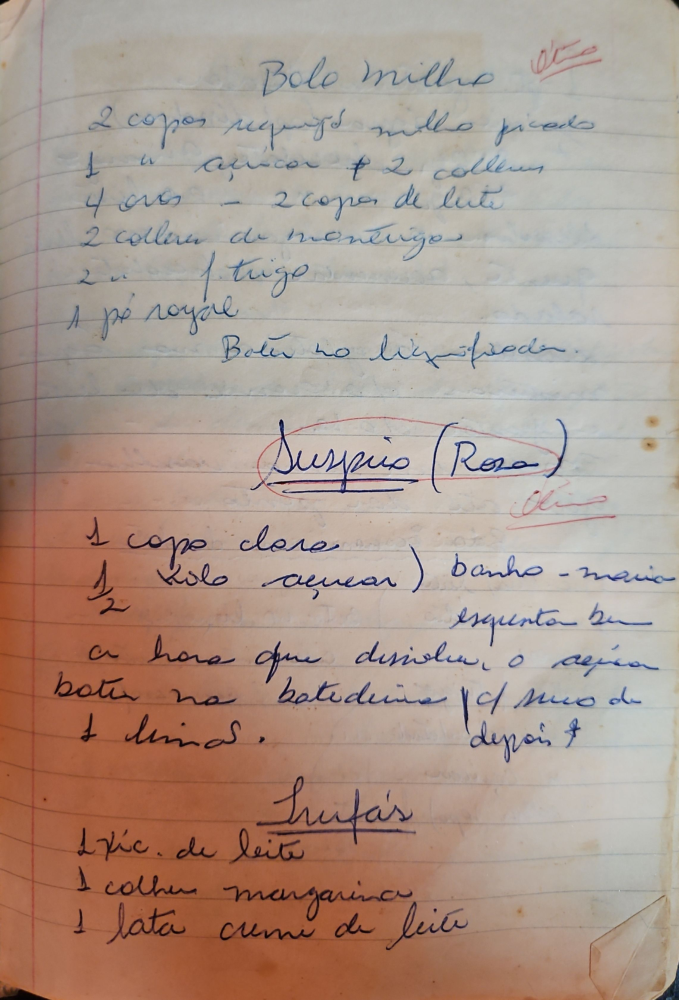 Bolo milho
ótimo
2 copos requeijã milho picado
1 " açúcar + 2 colheres
4 ovos - 2 copos de leite
2 colheres de manteiga
2 " f. trigo
1 pó royal
Bater no liquidificador.
Suspiro (Rosa)
ótimo
1 copo clara
1/2 kilo açucar) banho-maria
esquentar bem
a hora que dissolver, o açúcar
bater na batedeira c/ suco de
1 limão. depois +
Trufas
1 xíc. de leite
1 colher margarina
1 lata creme de leite